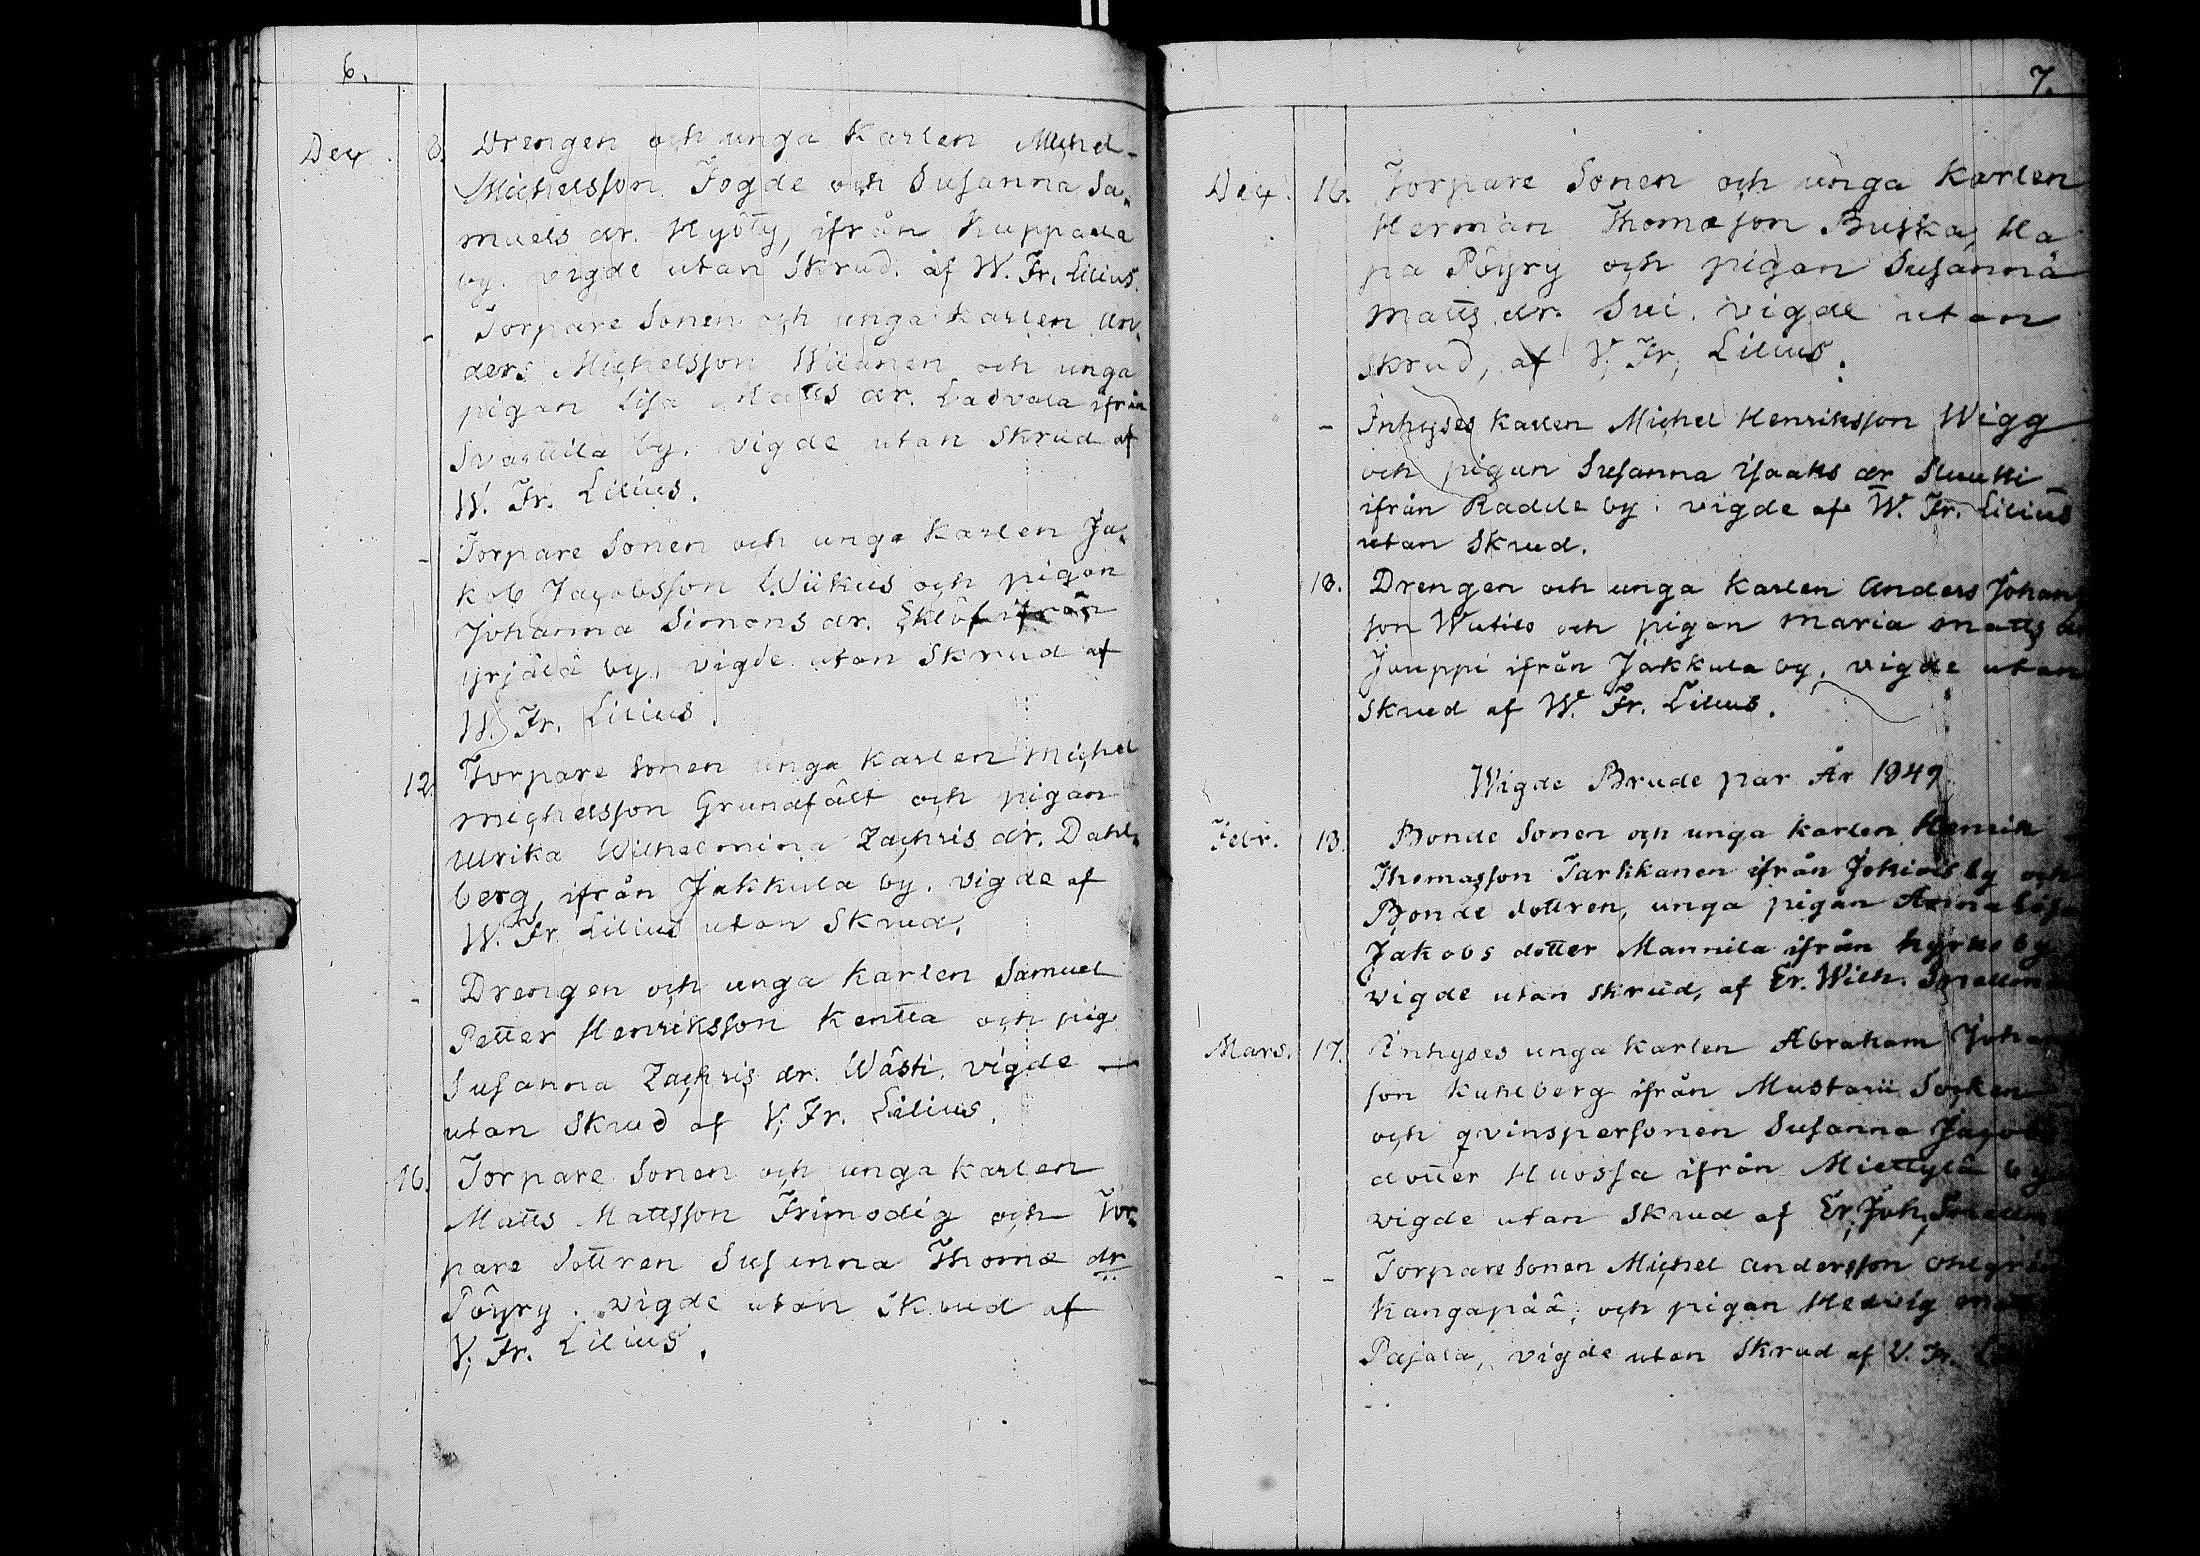 6.
Dec. 8. Drengen och unga Karlen Michel
Michelsson Fogde och Susanna Sa„
muels dr. Hyöty, ifrån Huppala
by. vigde utan Skrud. af W. Fr. Lilius.
- Torpare Sonen och unga Karlen An„
ders Michelsson Wiianen och unga
pigan Lisa Matts dr. Ladvala ifrån
Svattila by. vigde utan Skrud af
W. Fr. Lilius.
- Torpare Sonen och unga Karlen Ja„
kob Jacobsson Wiikus och pigan
Johanna Simons dr. Eklöf ifrån
yrjälä by, vigde utan Skrud af
W. Fr. Lilius.
12. Torpare Sonen unga Karlen Michel
Michelsson Grundfält och pigan
Ulrika Wilhelmina Zachris dr. Dahl„
berg, ifrån Jakkula by. vigde af
W. Fr. Lilius utan Skrud.
- Drengen och unga Karlen Samuel
Petter Henriksson Kentta och pig.
Susanna Zachris dr. Wästi. vigde —
utan Skrud af V. Fr. Lilius.
16. Torpare Sonen och unga Karlen
Matts Mattsson Frimodig och Tor„
pare dottren Susanna Thomæ dr
Pöyry. vigde utan Skrud af
V. Fr. Lilius.
7.
Dec. 16. Torpare Sonen och unga Karlen
Herman Thomæson Buska, Ha
pa Pöyry och pigan Susanna
Matts dr. Sui. vigde utan
skrud, af V. Fr. Lilius.
- Inhyses Karlen Michel Henriksson Wigg
och pigan Susanna Isaaks dr
ifrån Radde by. vigde af W. Fr. Lilius
utan Skrud.
18. Drengen och unga Karlen Anders Johan
son och pigan Maria Matts dr
Jauppi ifrån Jakkula by, vigde utan
Skrud af W. Fr. Lilius.
Wigde Brude par År 1849
Febr. 13. Bonde Sonen och unga Karlen Henrik
Thomasson Tarkkanen ifrån by och
Bonde dottren, unga pigan Anna Lisa
Jakobs dotter Mannila ifrån by
vigde utan Skrud, af Er. Wilh.
Mars. 17. Inhyses unga Karlen Abraham Johan
son Kuhlberg ifrån Socken
och qvinspersonen Susanna Jacobs
dotter Huossa ifrån Miettylä by
vigde utan Skrud af Er. Joh.
- - Torpare Sonen Michel Andersson
Kangapää; och pigan Hedvig
Pajala, vigde utan Skrud af V. Fr.